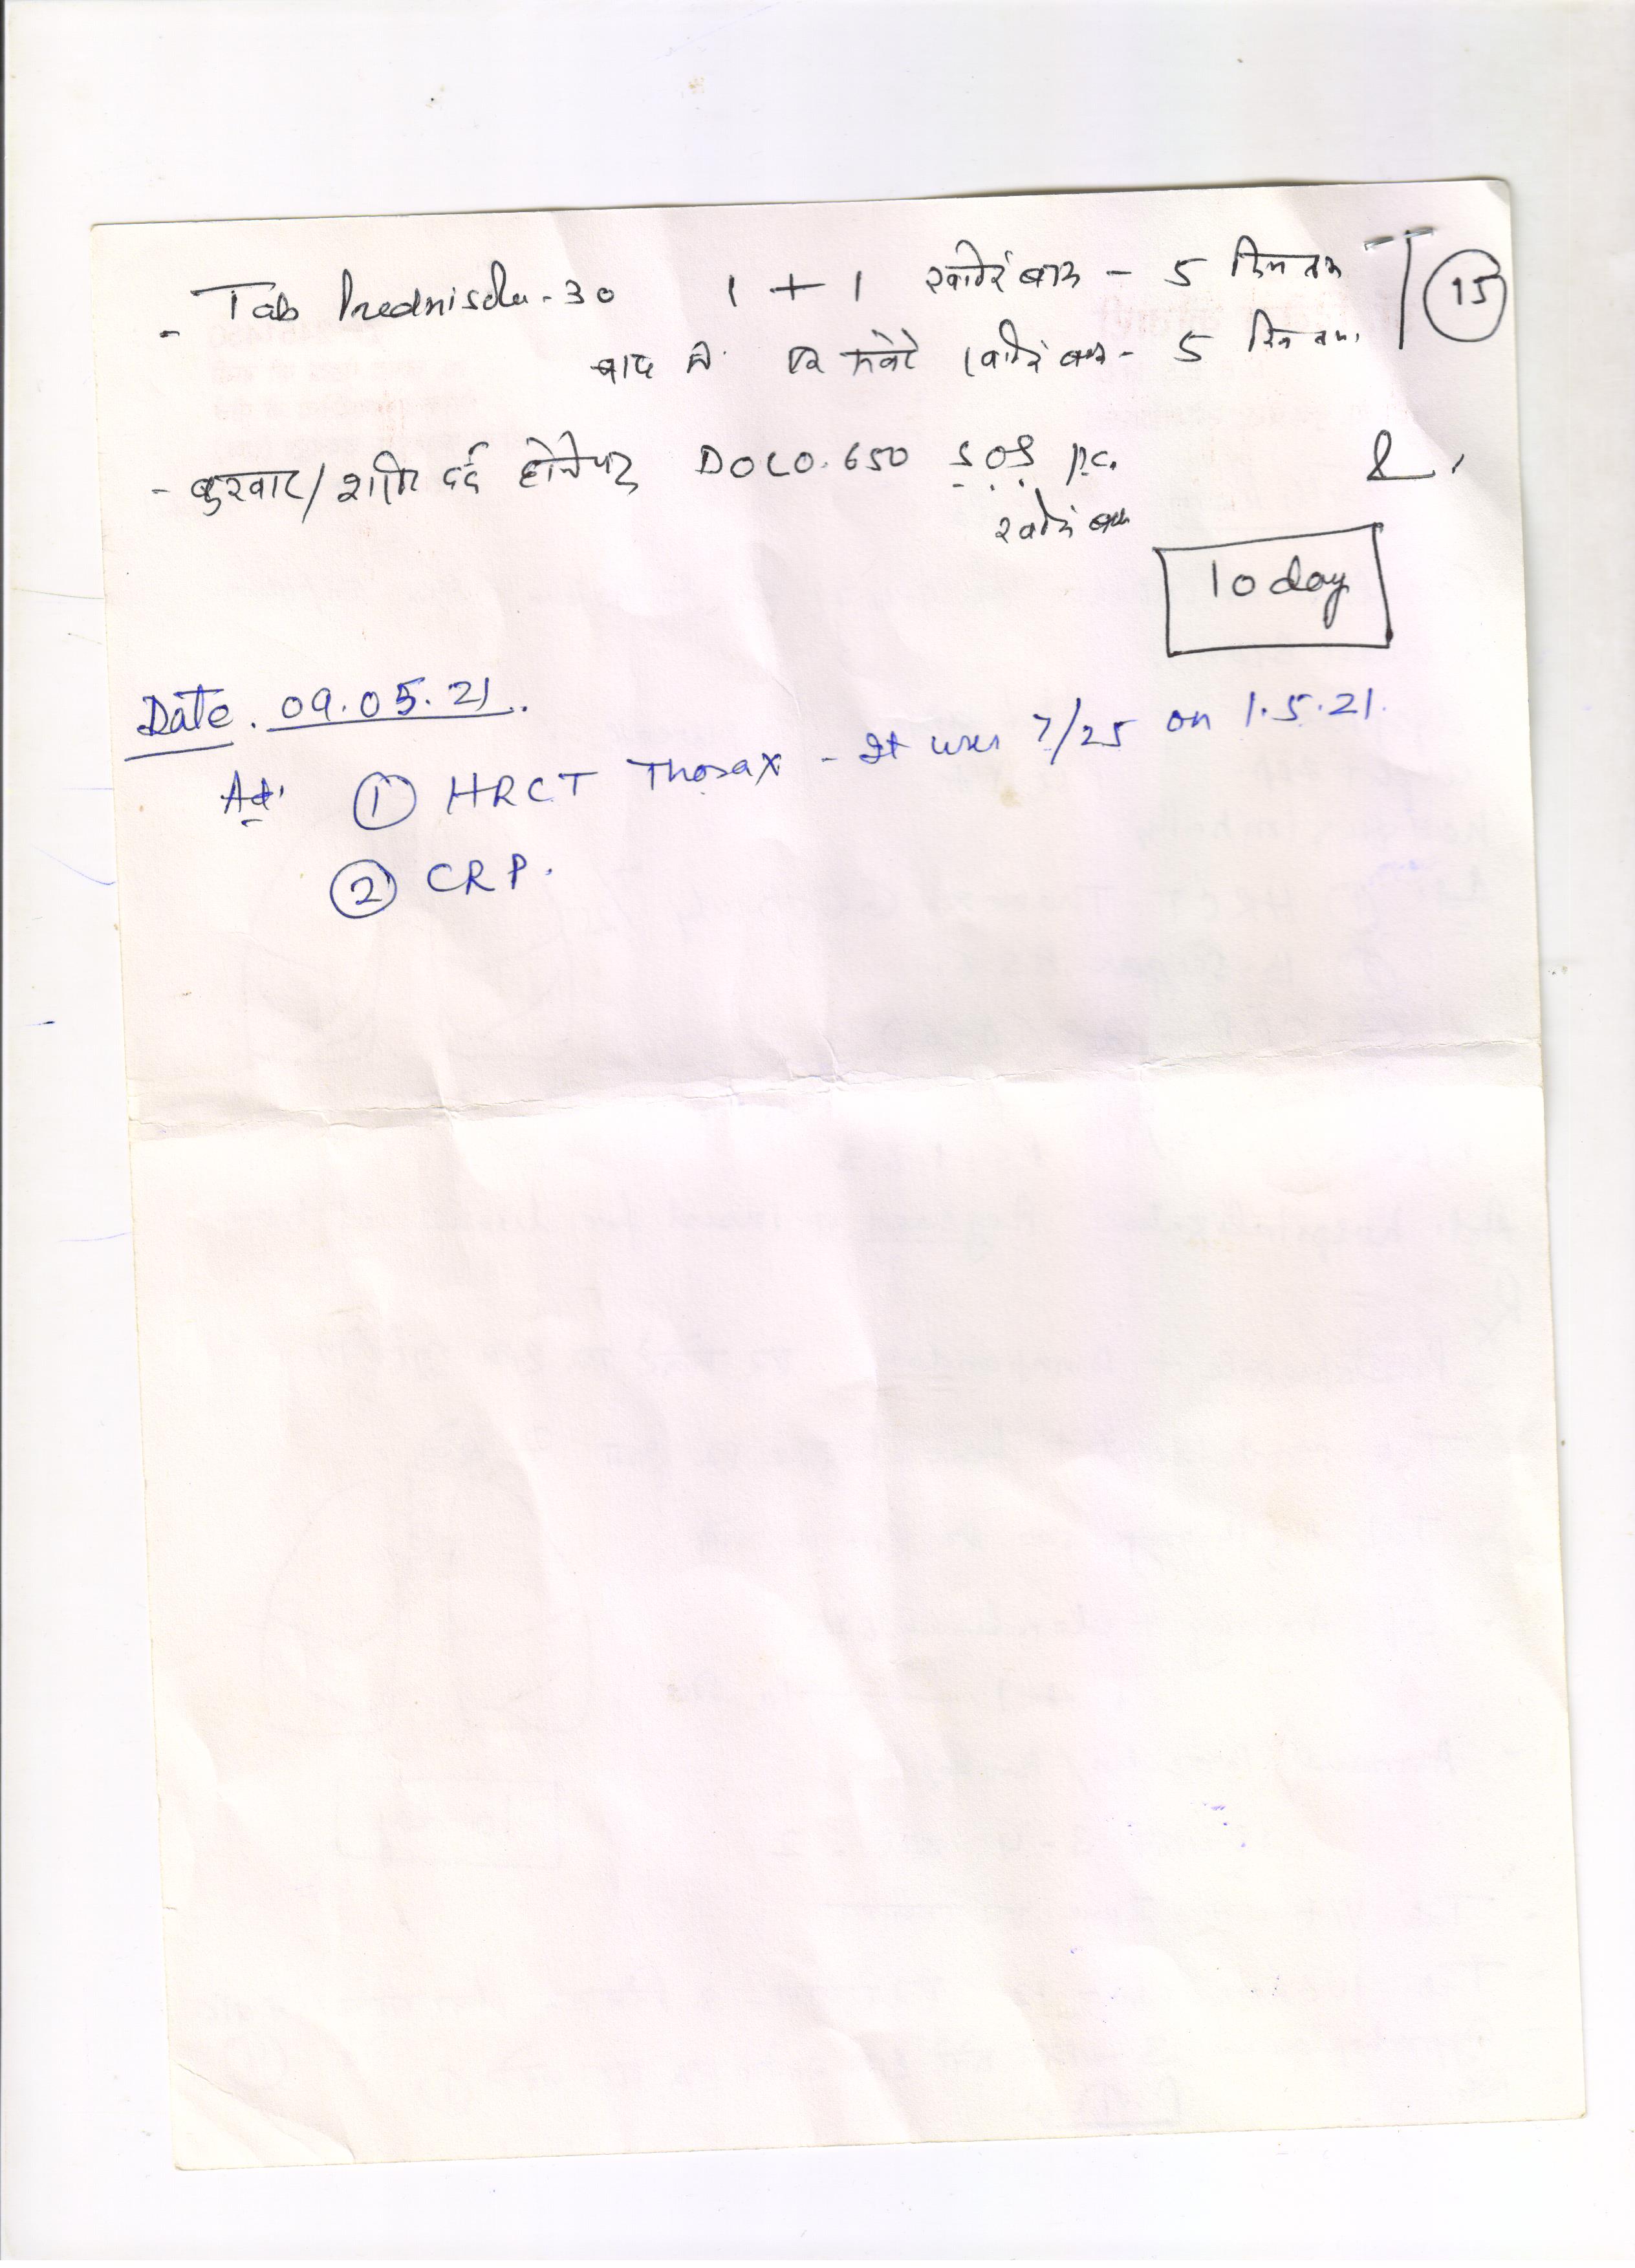 - Tab Prednisolu-30 1 + 1 खाने के बाद - 5 दिन तक 15
बाद में एक सवेरे खाने के बाद - 5 दिन तक.
- बुखार/शरीर दर्द होने पर DOLO.650 SOS p.c.
खाने के बाद
10 day
Date. 09.05.21.
Ad. ① HRCT Thorax - It was 7/25 on 1.5.21.
② CRP.